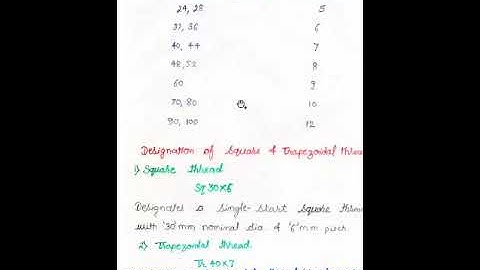 24, 28 5
32, 36 6
40, 44 7
48, 52 8
60 9
70, 80 10
90, 100 12
Designation of Square & Trapezoidal thread
1) Square thread
Sq 30x6
Designates a single-start square thread
with '30' mm nominal dia. & '6' mm pitch.
2) Trapezoidal thread.
Tr 40x7